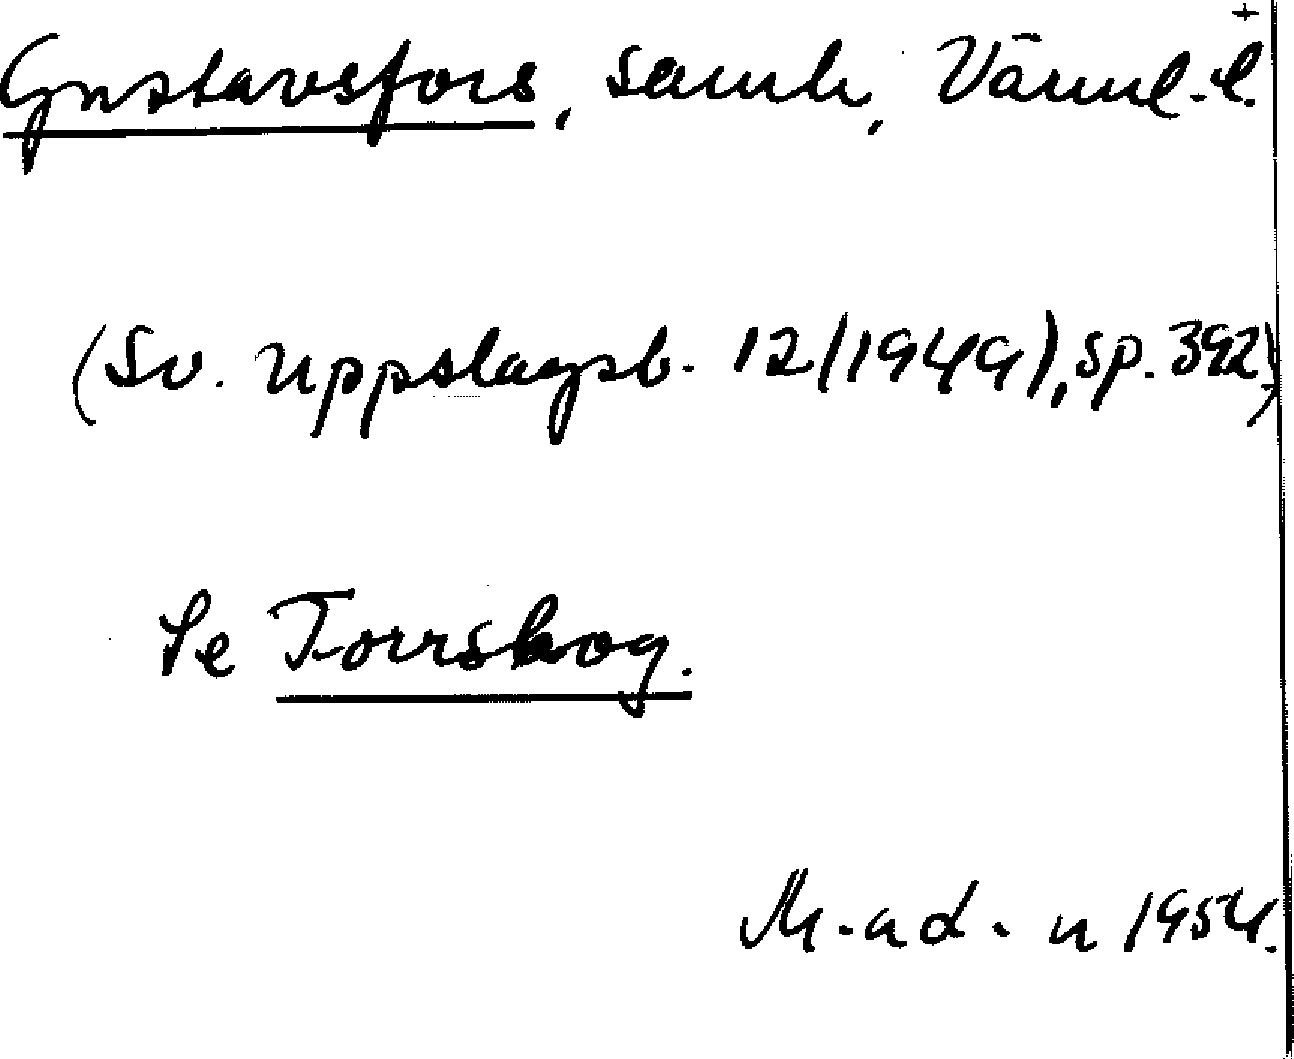 +
Gustavsfors, samh., Värml. l.
(Sv. Uppslagsb. 12 (1949), sp. 392)
Se Torrskog.
M-ad. n 1954.